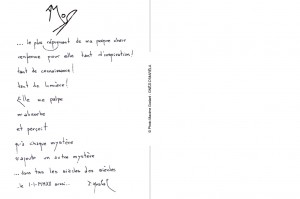 ... le plus répugnant de ma propre chair
renferme pour elle tant d'inspiration!
tant de connaissance!
tant de lumière!
Elle me palpe
m'absorbe
et perçoit
qu'à chaque mystère
s'ajoute un autre mystère
... dans tous les siècles des siècles
le 1-1-MMXX
© Photo Maxime Godard